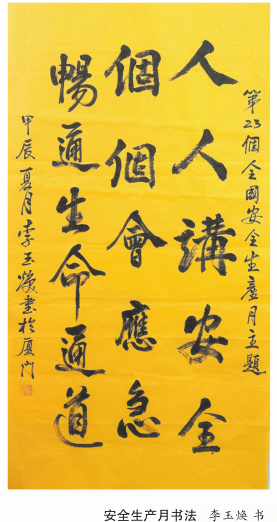 第23個全國安全生產月主題
人人講安全
個個會應急
暢通生命通道
甲辰夏月李玉煥書於厦門
安全生产月书法 李玉焕 书